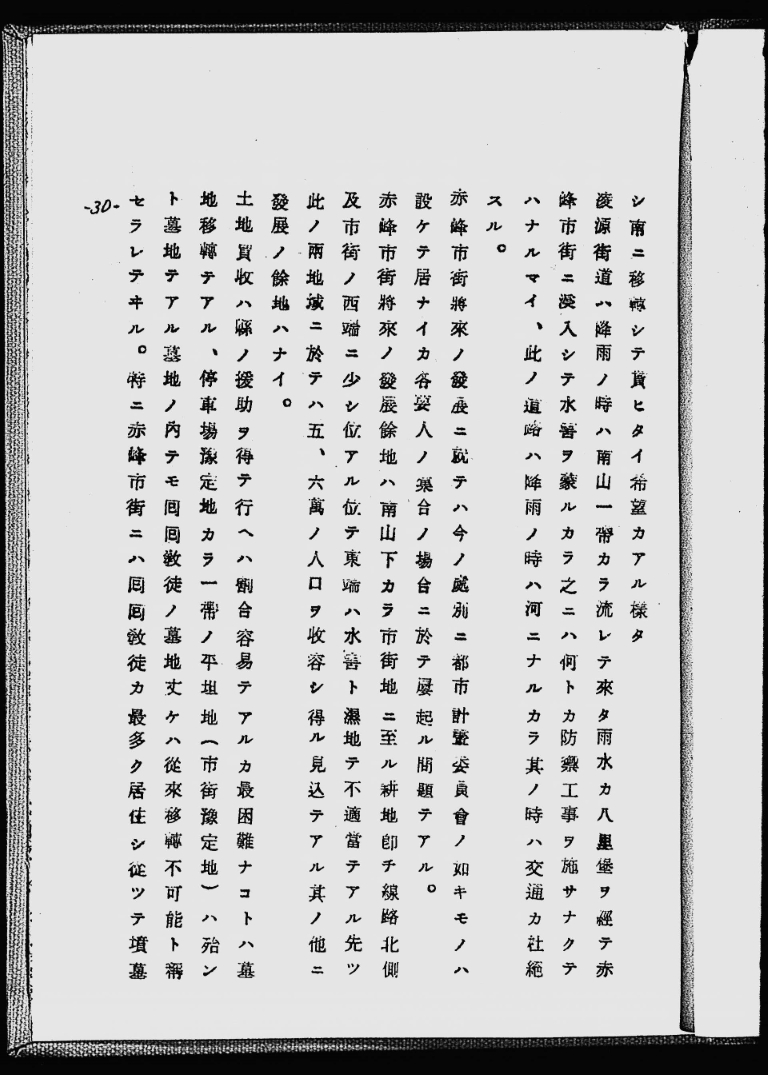 シ南ニ移轉シテ貰ヒタイ希望カアル樣タ
凌源街道ハ降雨ノ時ハ南山一帶カラ流レテ來タ雨水カ八里堡ヲ經テ赤
峰市街ニ浸入シテ水害ヲ蒙ルカラ之ニハ何トカ防禦工事ヲ施サナクテ
ハナルマイ、此ノ道路ハ降雨ノ時ハ河ニナルカラ其ノ時ハ交通カ杜絕
スル。
赤峰市街將來ノ發展ニ就テハ今ノ處別ニ都市計畫委員會ノ如キモノハ
設ケテ居ナイカ各要人ノ集合ノ場合ニ於テ屢起ル問題テアル。
赤峰市街將來ノ發展餘地ハ南山下カラ市街地ニ至ル耕地卽チ線路北側
及市街ノ西端ニ少シ位アル位テ東端ハ水害ト濕地テ不適當テアル先ツ
此ノ兩地域ニ於テハ五、六萬ノ人口ヲ收容シ得ル見込テアル其ノ他ニ
發展ノ餘地ハナイ。
土地買收ハ縣ノ援助ヲ得テ行ヘハ割合容易テアルカ最困難ナコトハ墓
地移轉テアル、停車場豫定地カラ一帶ノ平坦地(市街豫定地)ハ殆ン
ト墓地テアル墓地ノ內テモ回回敎徒ノ墓地丈ケハ從來移轉不可能ト稱
セラレテヰル。特ニ赤峰市街ニハ回回敎徒カ最多ク居住シ從ツテ墳墓
-30-